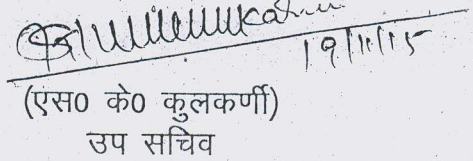 19/11/15
(एस0 के0 कुलकर्णी)
उप सचिव